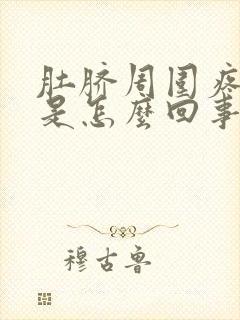 肚脐周围疼
是怎麼回事
穆古鲁